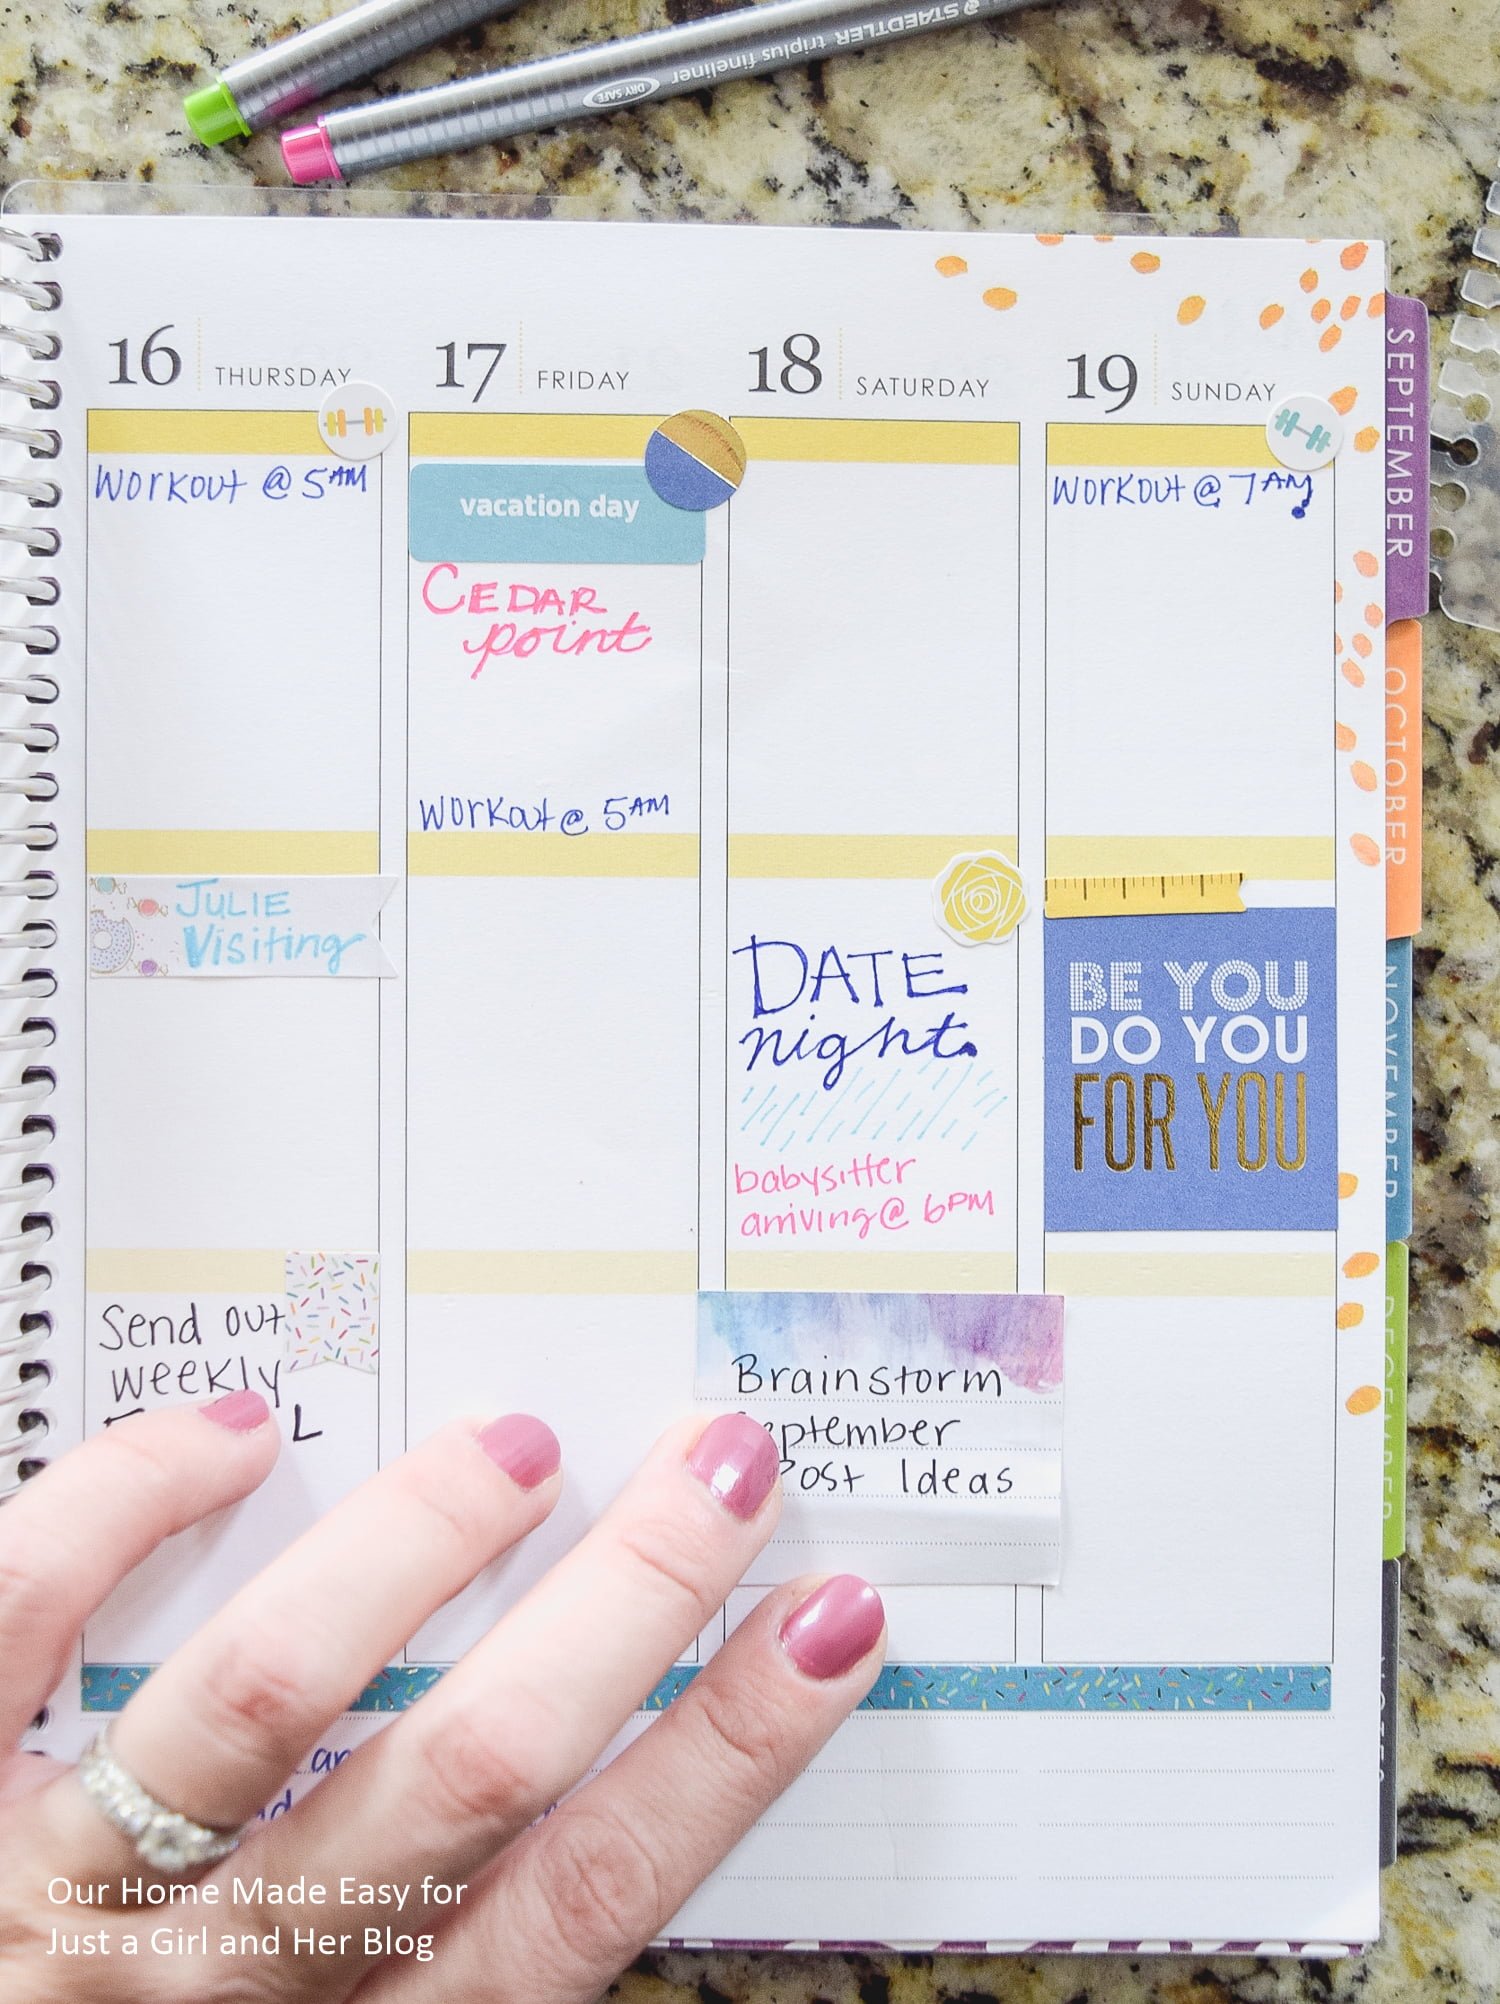 STAEDTLER triplus fineliner
DRY SAFE
16 THURSDAY
WORKOUT @ 5AM
JULIE
Visiting
Send out
weekly
L
17 FRIDAY
vacation day
CEDAR
point
WORKout @ 5AM
18 SATURDAY
DATE
night
babysitter
arriving @ 6PM
Brainstorm
eptember
Post Ideas
19 SUNDAY
WORKOUT @ 7AM
BE YOU
DO YOU
FOR YOU
SEPTEMBER
OCTOBER
NOVEMBER
DECEMBER
NOTES
Our Home Made Easy for
Just a Girl and Her Blog